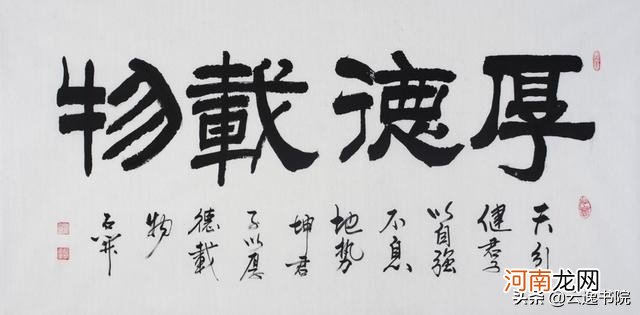 厚德載物
天行
健君子
以自強
不息
地勢
坤君
子以厚
德載
物
河南龙网
头条 @云逸书院